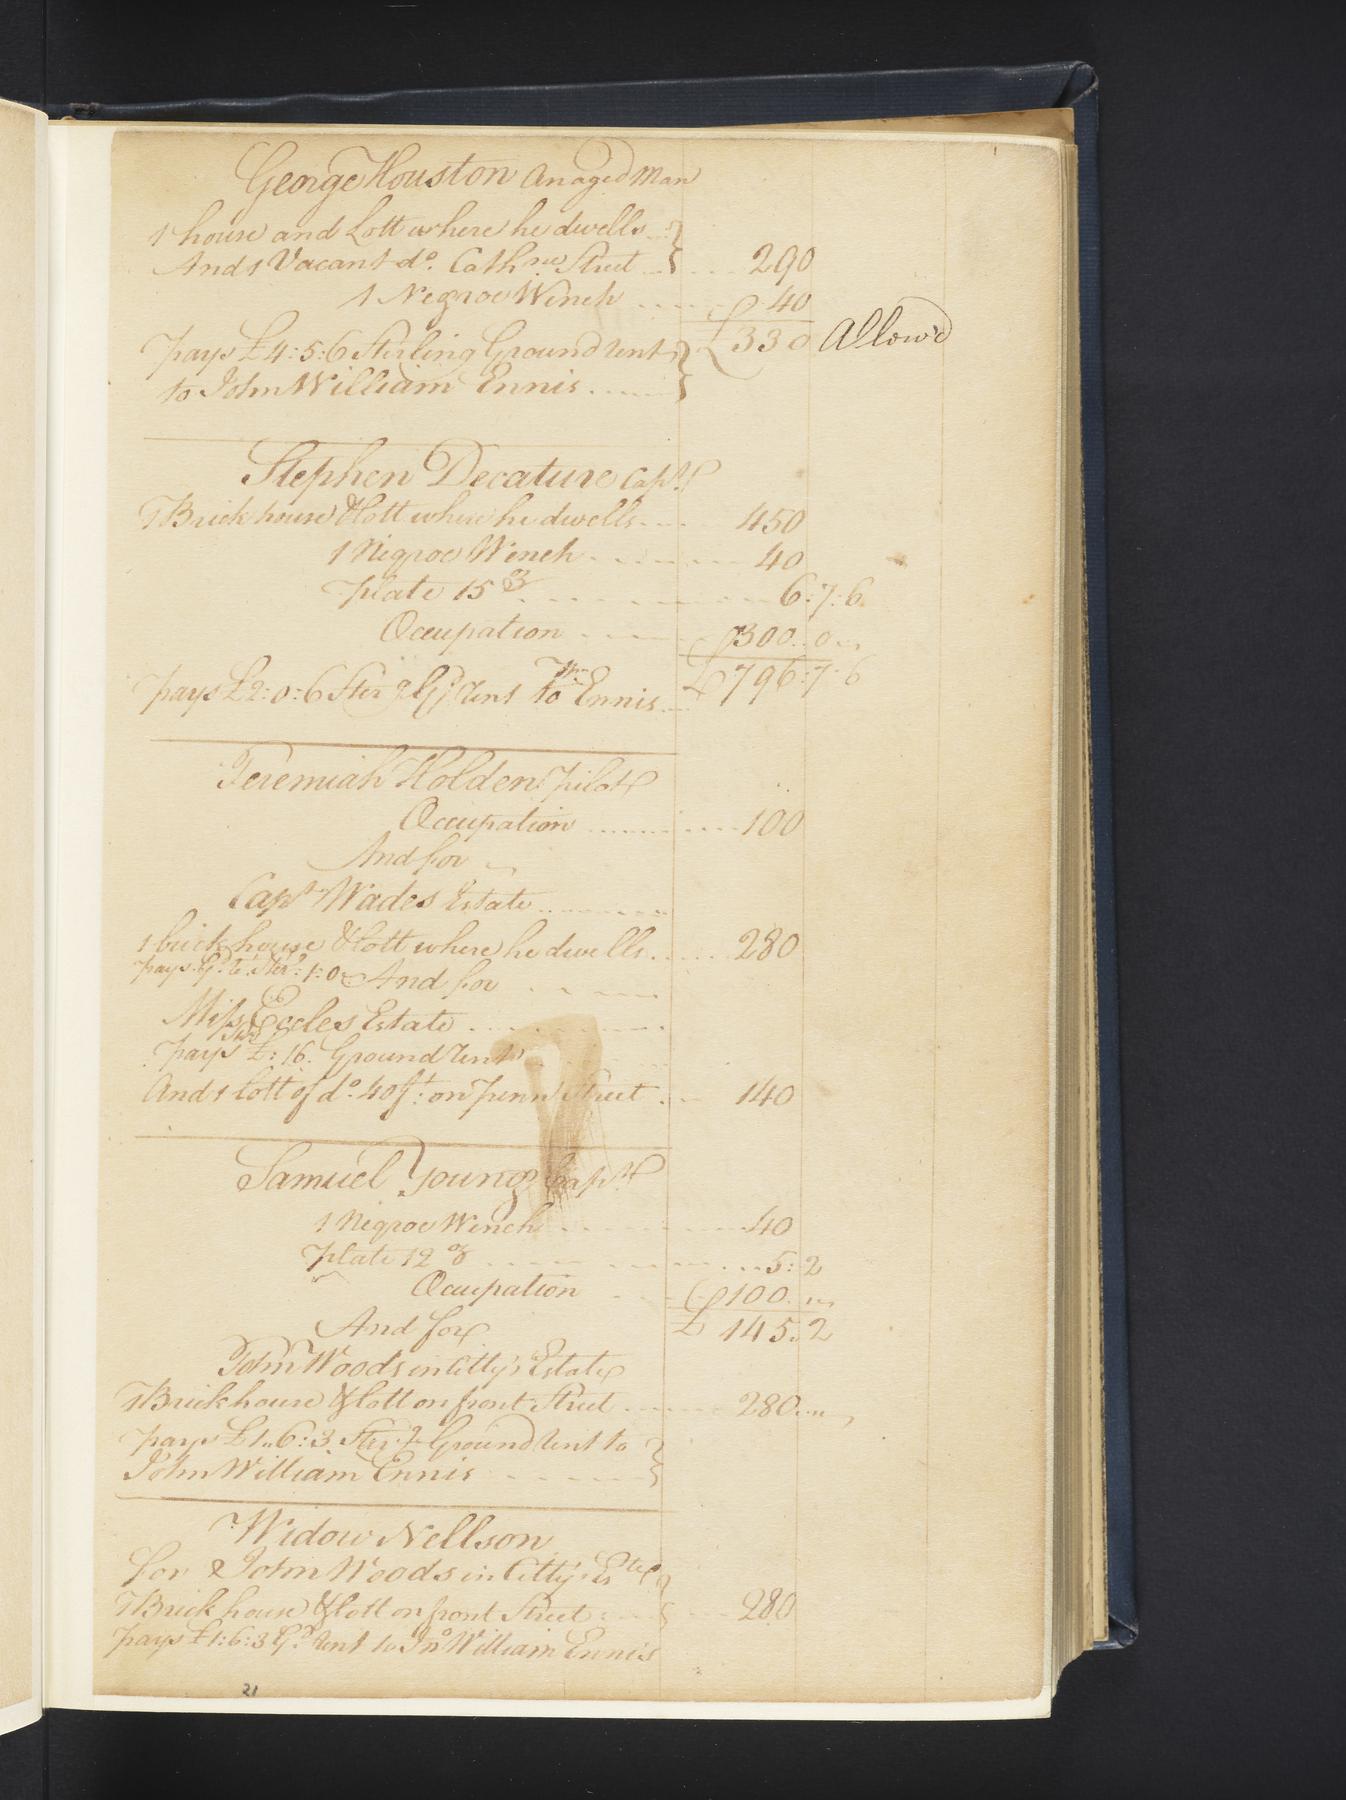 George Houston an aged Man
1 house and Lott where he dwells
And 1 Vacant do. Cathne Street 290
1 Negroe Wench 40
pays £4:5:6 Sterling Ground rent £330 Allow'd
to John William Ennis
Stephen Decature Capt
1 Brick house & lott where he dwells 450
1 Negroe Wench 40
Plate 15 oz 6:7:6
Occupation 300..0
pays £2:0:6 Ster g Gd rent to Wm Ennis £796:7:6
Jeremiah Holden Pilot
Occupation 100
And for
Capt Wades Estate
1 brick house & lott where he dwells 280
pays Gd Rt Ster: 1:0 And for
Miss Eccles Estate
pays £:16. Ground rent
And 1 lott of do. 40 ft: on Penn Street 140
Samuel Young Capt
1 Negroe Wench 40
Plate 12 oz 5:2
Occupation 100
And for £145:2
John Woods in Citty's Estate
1 Brick house & lott on front Street 280
pays £1..6:3 Ster g Ground rent to
John William Ennis
Widow Nellson
for John Woods in Citty's Este
1 Brick house & lott on front Street 280
pays £1:6:3 Gd rent to Jno William Ennis
21